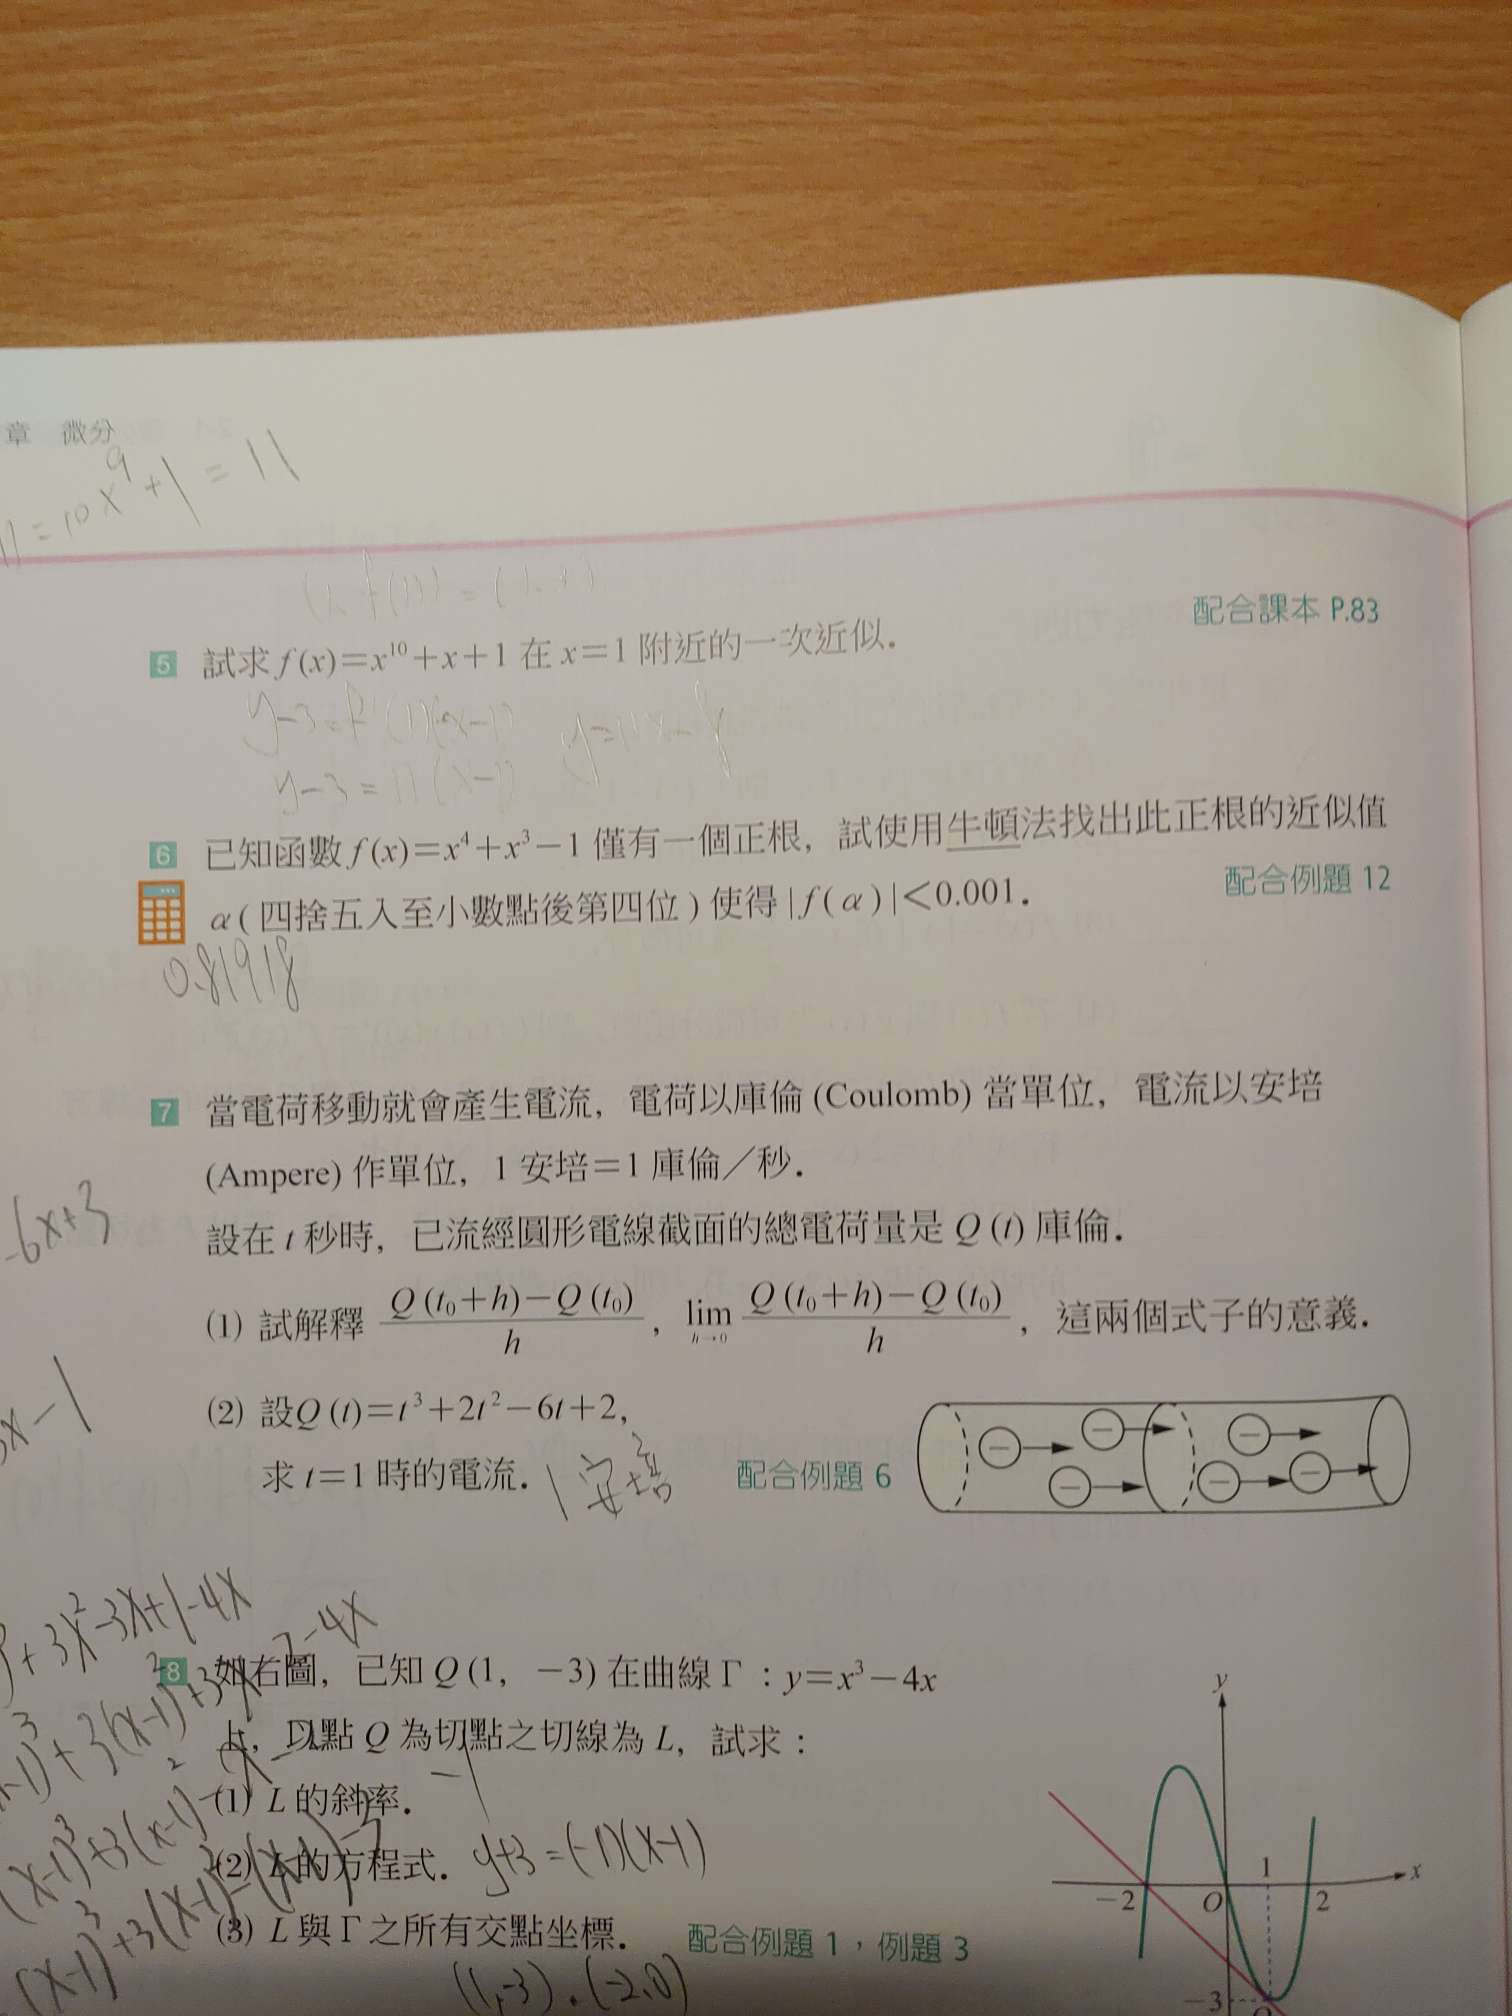 章 微分
=10x⁹+1=11
配合課本 P.83
5 試求 f(x)=x¹⁰+x+1 在 x=1 附近的一次近似.
y-3=f'(1)(x-1)
y-3=11(x-1)
6 已知函數 f(x)=x⁴+x³-1 僅有一個正根，試使用牛頓法找出此正根的近似值
α(四捨五入至小數點後第四位)使得|f(α)|<0.001.
配合例題 12
0.81918
7 當電荷移動就會產生電流，電荷以庫倫 (Coulomb) 當單位，電流以安培
(Ampere) 作單位，1 安培=1 庫倫／秒.
-6x+3
設在 t 秒時，已流經圓形電線截面的總電荷量是 Q(t) 庫倫.
(1) 試解釋 (Q(t₀+h)-Q(t₀))/h，lim h→0 (Q(t₀+h)-Q(t₀))/h，這兩個式子的意義.
x-1
(2) 設Q(t)=t³+2t²-6t+2,
求 t=1 時的電流. 1安培
配合例題 6
+3x²-3x+1-4x
8 如右圖，已知 Q(1，-3) 在曲線 Γ：y=x³-4x
上，以點 Q 為切點之切線為 L，試求：
(1) L 的斜率. -1
(2) L 的方程式. y+3=(-1)(x-1)
(3) L 與 Γ 之所有交點坐標.
配合例題 1，例題 3
(1,-3).(-2,0)
(x-1)³+3(x-1)²-(x-1)-3
y
x
-2
O
1
2
-3